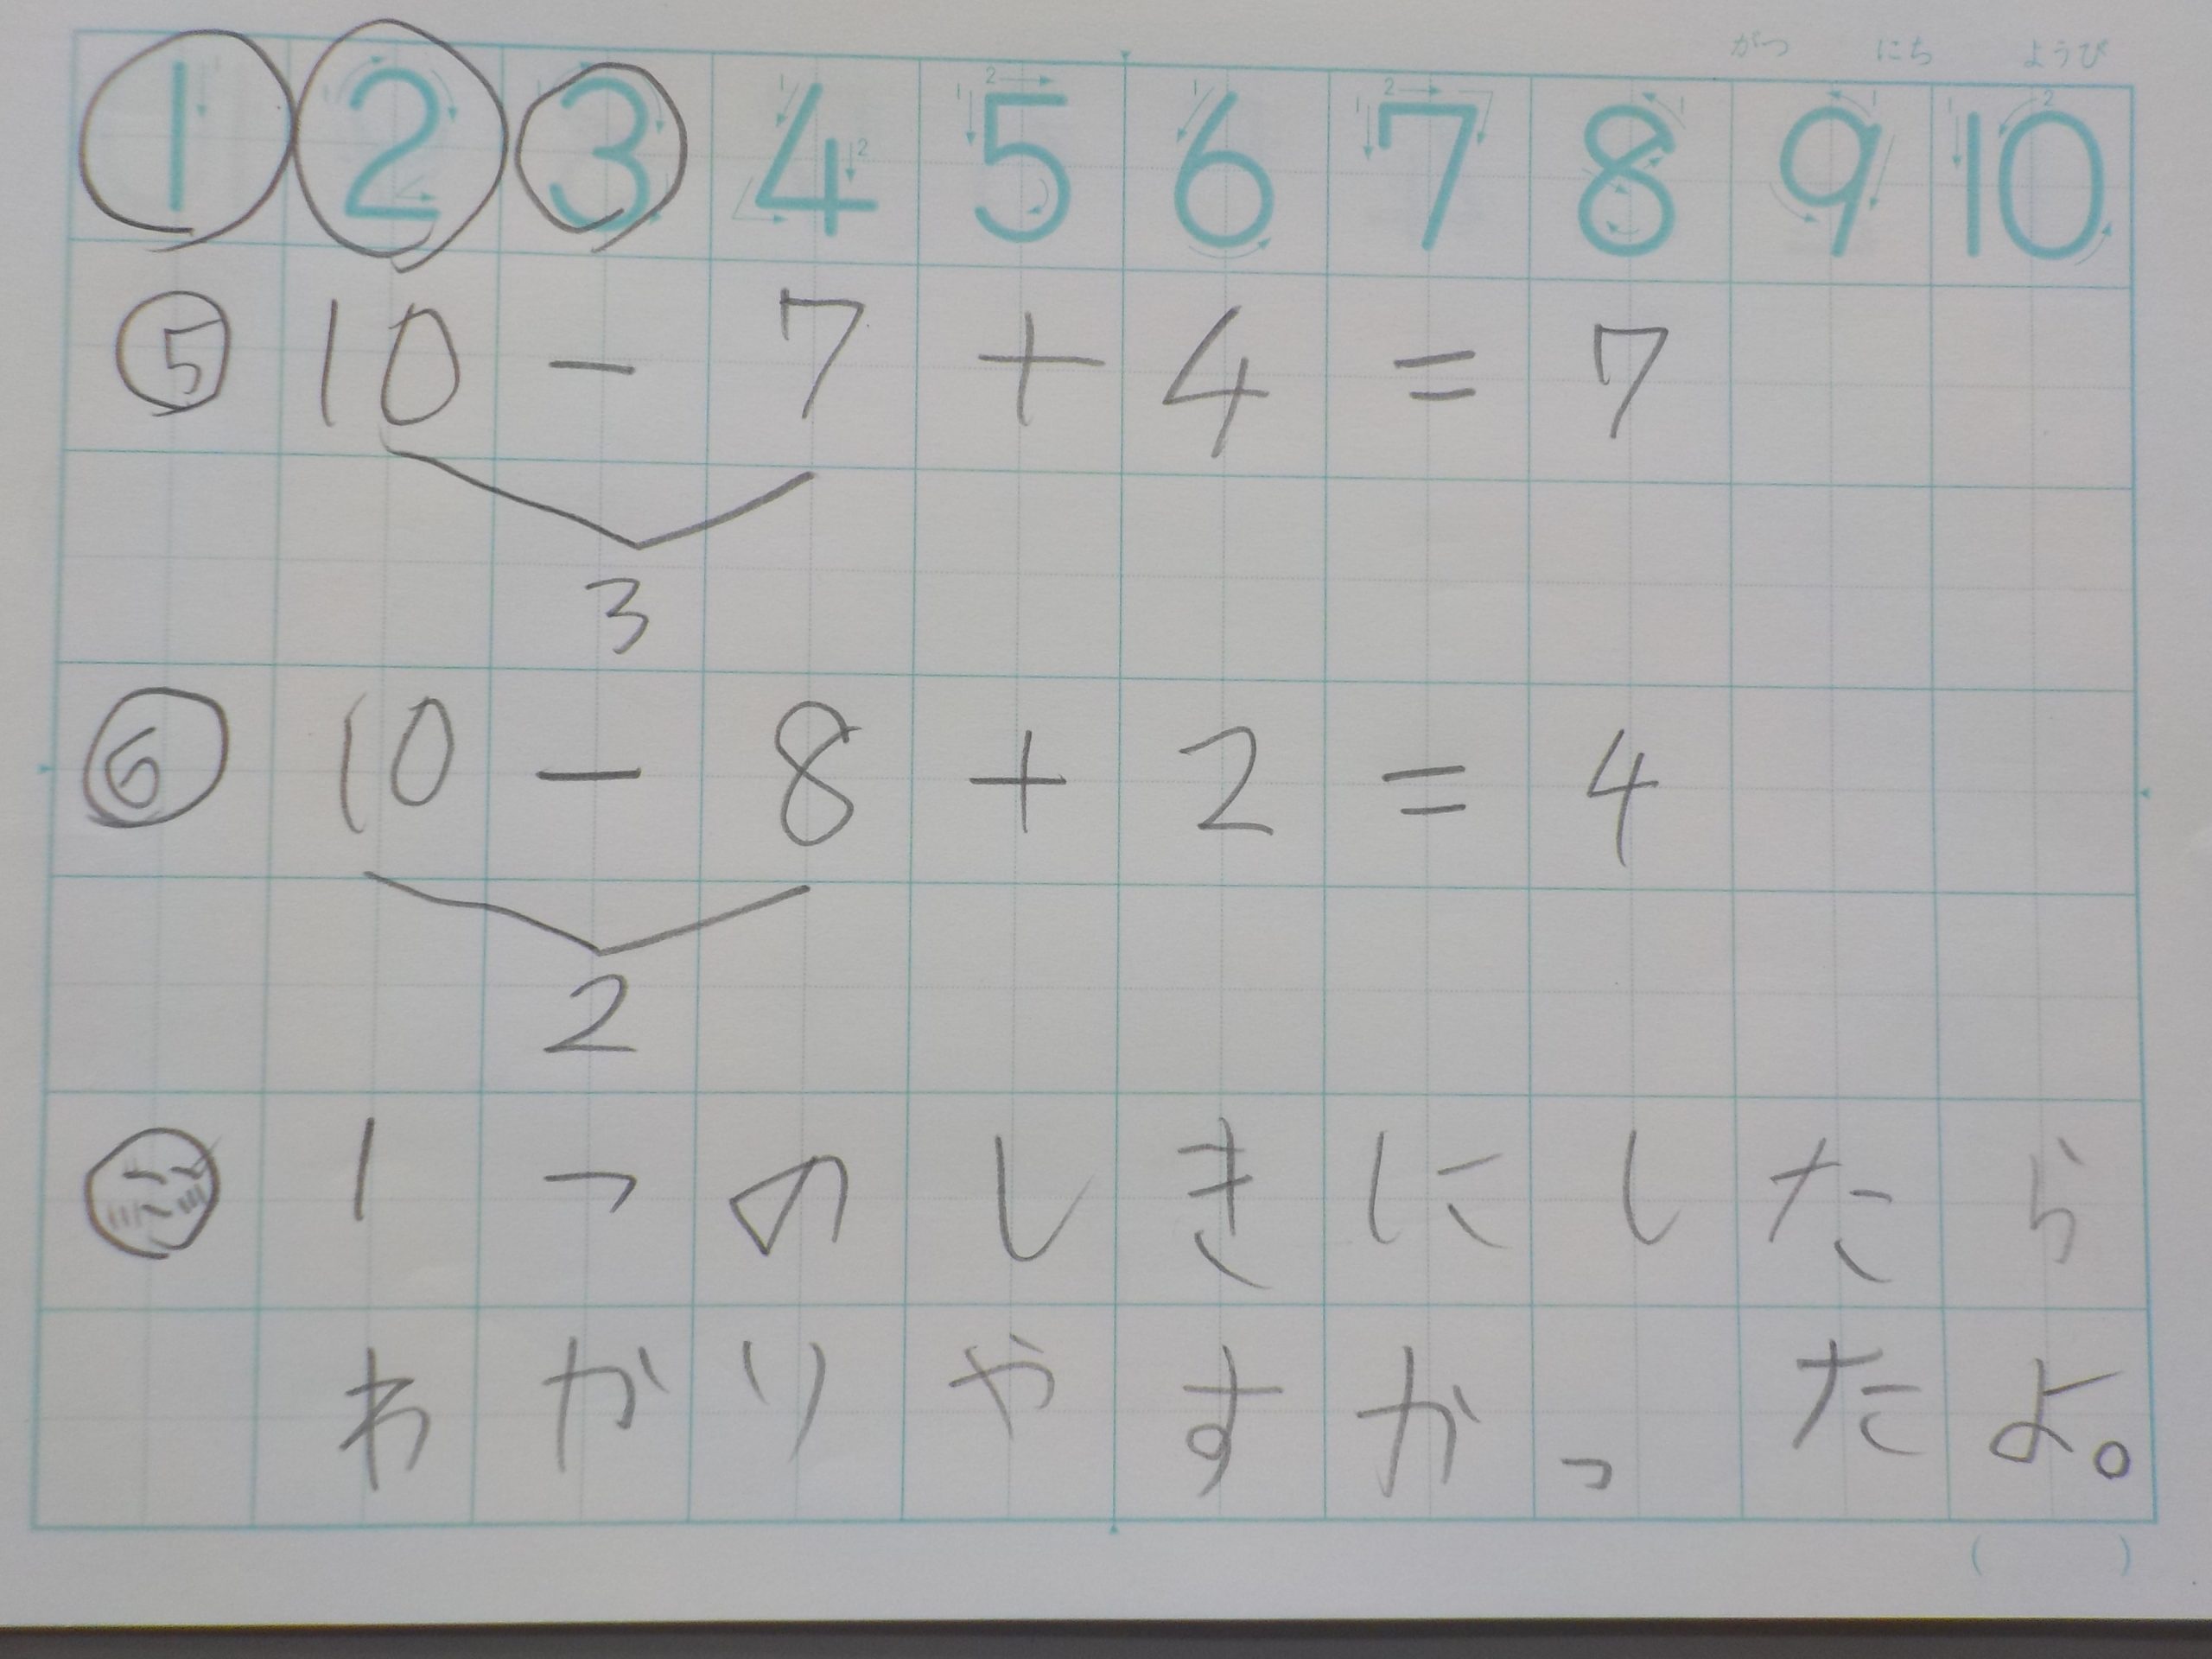 がつ にち ようび
1 2 3 4 5 6 7 8 9 10
⑤ 10 - 7 + 4 = 7
3
⑥ 10 - 8 + 2 = 4
2
1つのしきにしたら
わかりやすかったよ。
( )